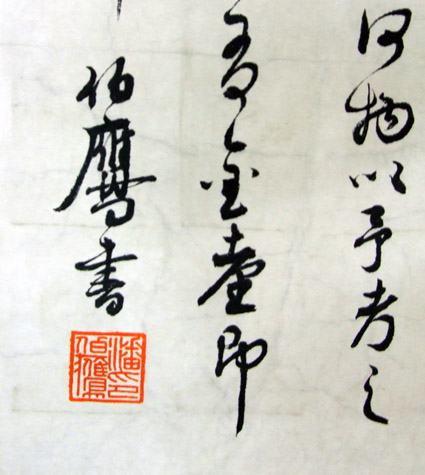 何物以予考之
金臺即
伯鷹書
潘印伯鷹